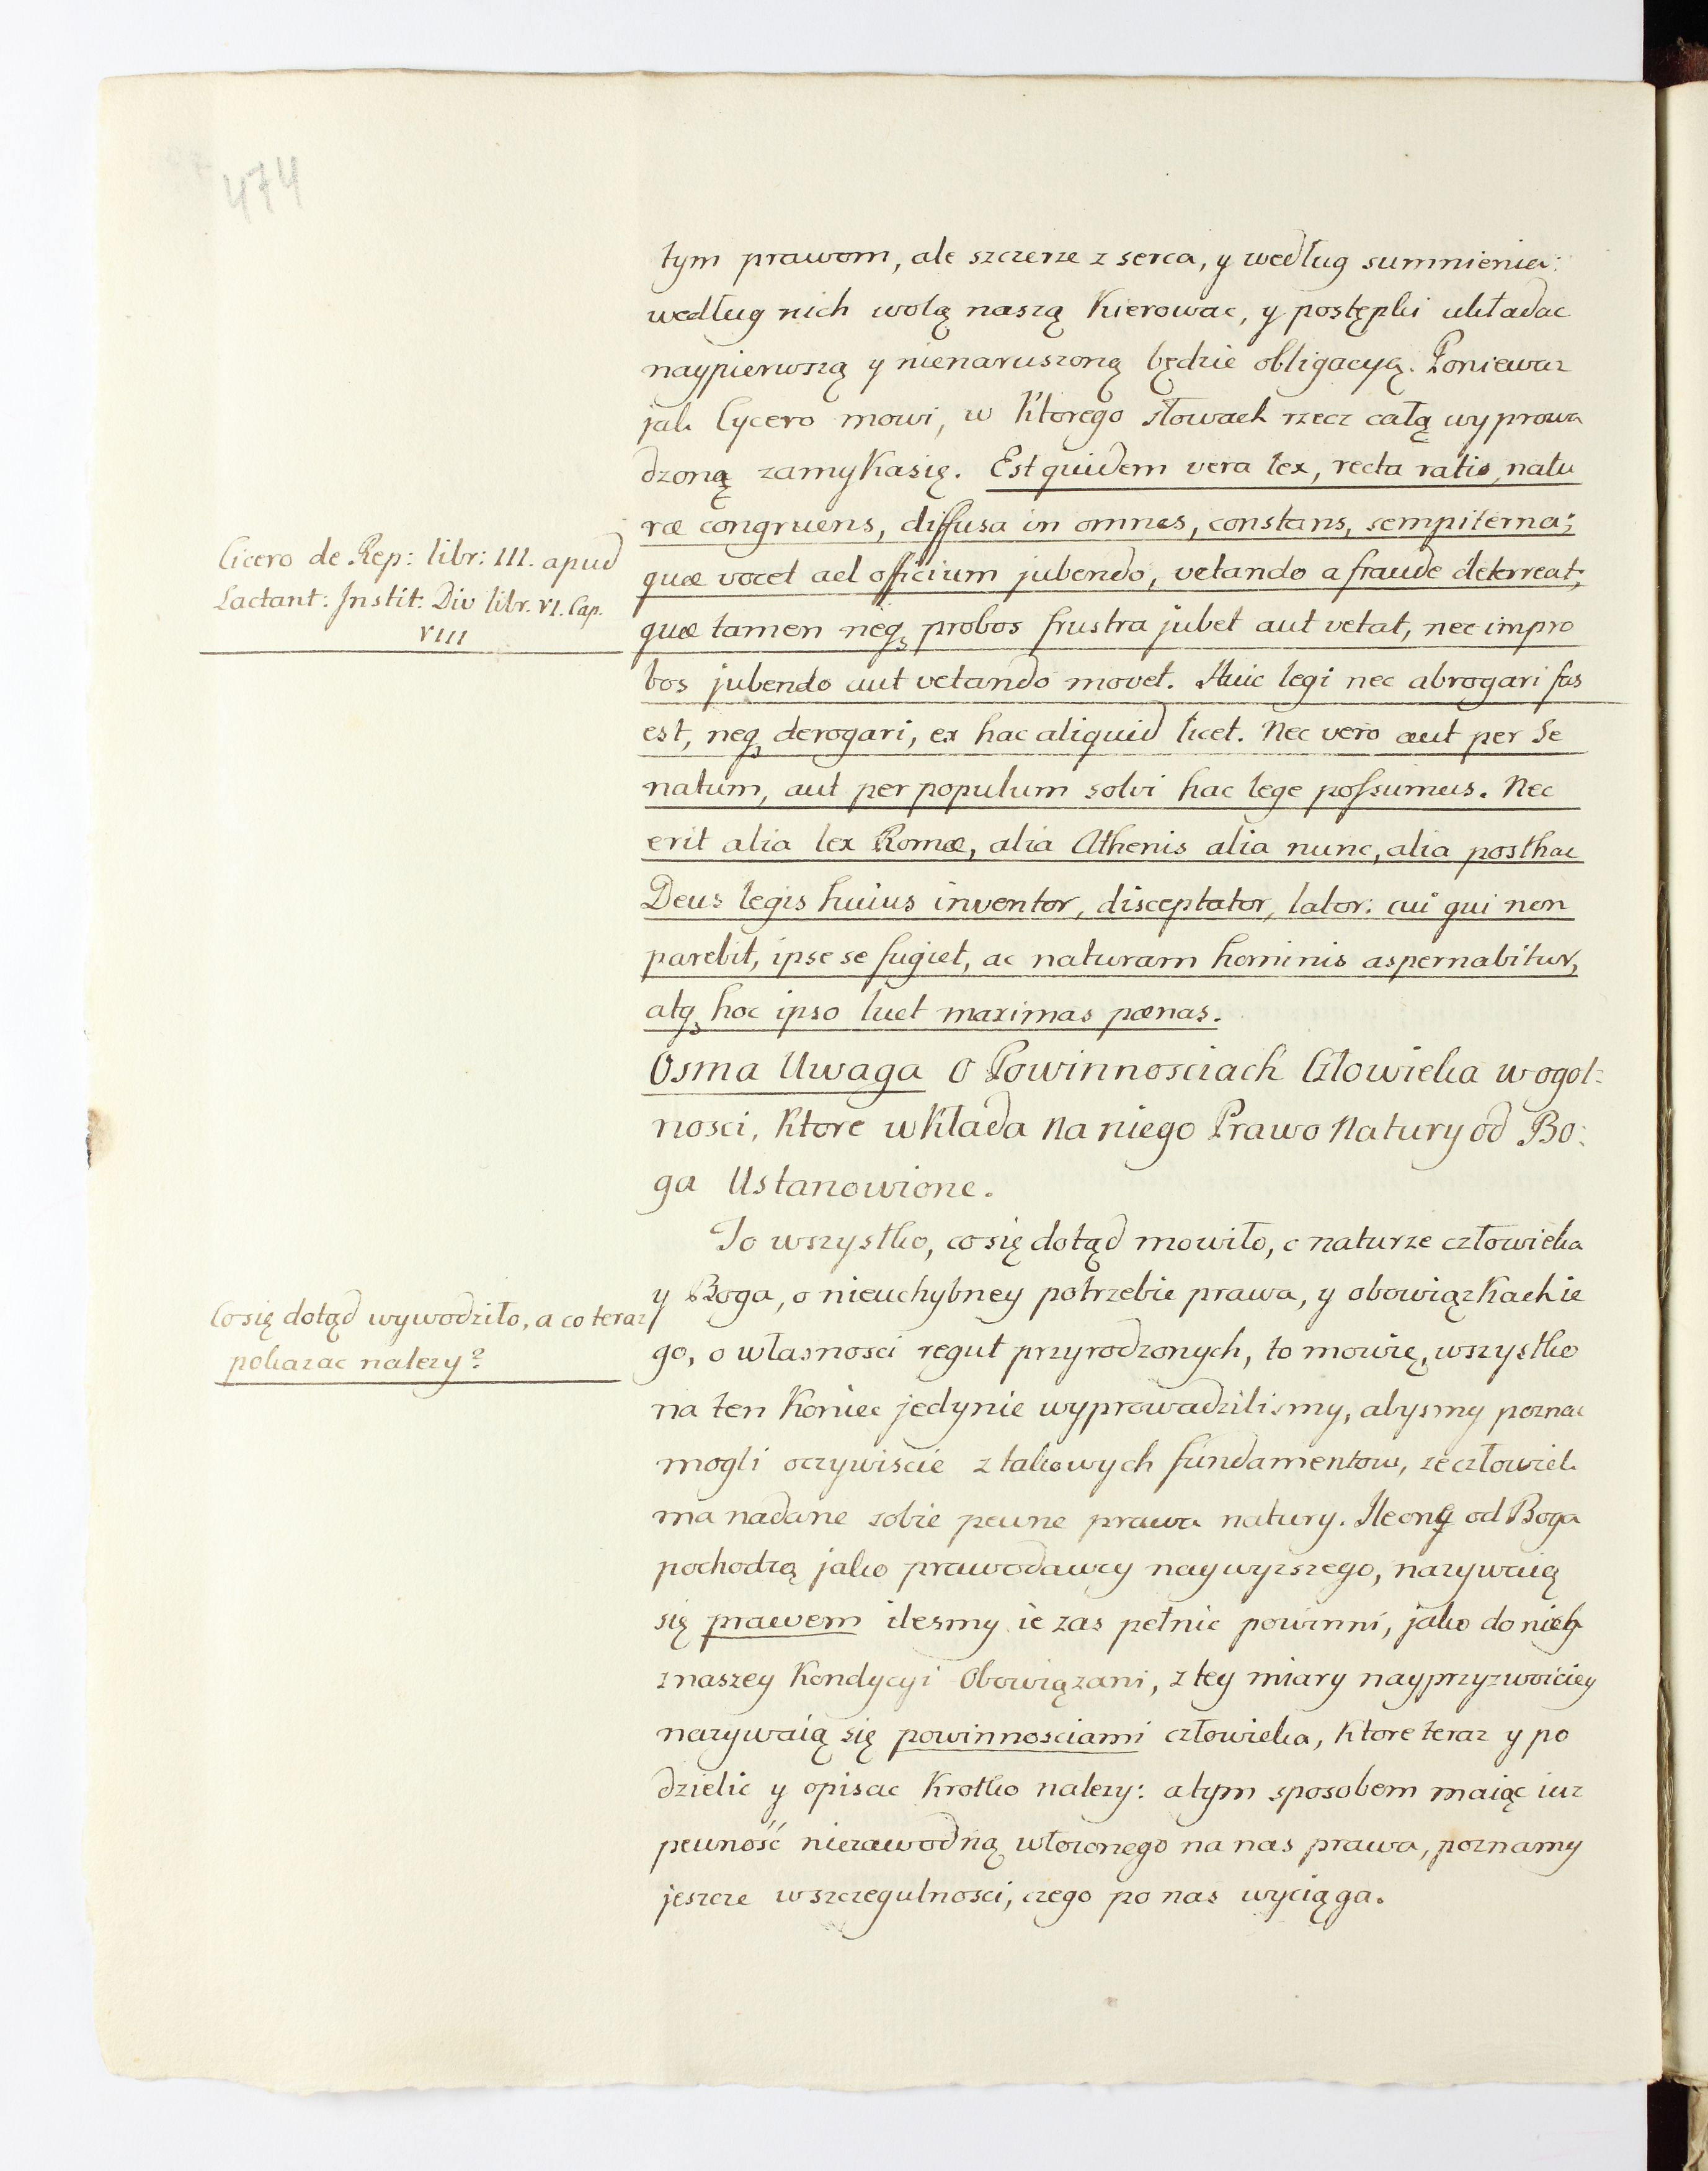 474
tym prawom, ale szczerze z serca, y według sumnienia:
według nich wolą naszą kierowac, y postępki układac
naypierwszą y nienaruszoną będzie obligacyą. Poniewaz
jak Cycero mowi, w ktorego słowach rzecz całą wyprowa
dzoną zamykasię. Est quidem vera lex, recta ratio, natu
ræ congruens, diffusa in omnes, constans, sempiterna;
quæ vocet ad officium jubendo, vetando a fraude deterreat;
quæ tamen neq probos frustra jubet aut vetat, nec impro
bos jubendo aut vetando movet. Huic legi nec abrogari fas
est, neq derogari, ex hac aliquid licet. Nec vero aut per Se
natum, aut per populum solvi hac lege possumus. Nec
erit alia lex Romæ, alia Athenis alia nunc, alia posthac
Deus legis huius inventor, disceptator, lator: cui qui non
parebit, ipse se fugiet, ac naturam hominis aspernabitur,
atq hoc ipso luet maximas pœnas.
Cicero de Rep: libr: III. apud
Lactant: Instit: Div libr. VI. Cap.
VIII
Osma Uwaga O Powinnosciach Człowieka w ogol:
nosci, ktore wkłada na niego Prawo Natury od Bo:
ga Ustanowione.
To wszystko, co się dotąd mowiło, o naturze człowieka
y Boga, o nieuchybney potrzebie prawa, y obowiązkach ie
go, o własnosci reguł przyrodzonych, to mowię, wszystko
na ten koniec jedynie wyprowadzilismy, abysmy poznac
mogli oczywiscie z takowych fundamentow, ze człowiek
ma nadane sobie pewne prawa natury. Ile one od Boga
pochodzą jako prawodawcy naywyzszego, nazywaią
się prawem ilesmy ie zas pełnic powinni, jako do nich
z naszey kondycyi Obowiązani, z tey miary nayprzyzwoiciey
nazywaią się powinnosciami człowieka, ktore teraz y po
dzielic y opisac krotko nalezy: a tym sposobem maiąc iuz
pewność niezawodną włozonego na nas prawa, poznamy
jeszcze w szczegulnosci, czego po nas wyciąga.
Co się dotąd wywodziło, a co teraz
pokazac nalezy?